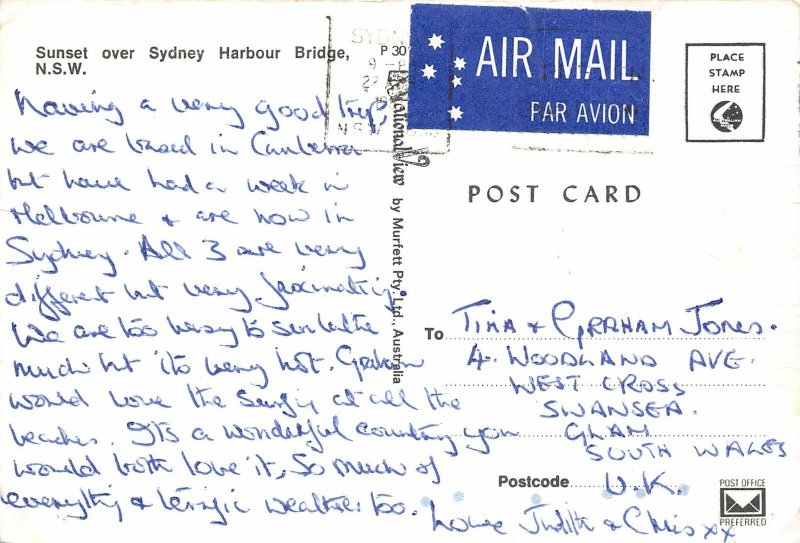 Sunset over Sydney Harbour Bridge,
N.S.W.
Having a very good trip,
we are based in Canberra
but have had a week in
Melbourne & are now in
Sydney. All 3 are very
different but very fascinating
We are too busy to sunbathe
much but its very hot. Graham
would love the surfing at all the
beaches. It's a wonderful country you
would both love it, So much of
everything & terrific weather too.
Love Judith & Chris xx
P 30
NationalView by Murfett Pty. Ltd., Australia
SYDN
N.S.W
AIR MAIL
PAR AVION
PLACE
STAMP
HERE
POST CARD
To Tina & GRAHAM Jones.
4. WOODLAND AVE.
WEST CROSS
SWANSEA.
GLAM
SOUTH WALES
Postcode U.K.
POST OFFICE
PREFERRED